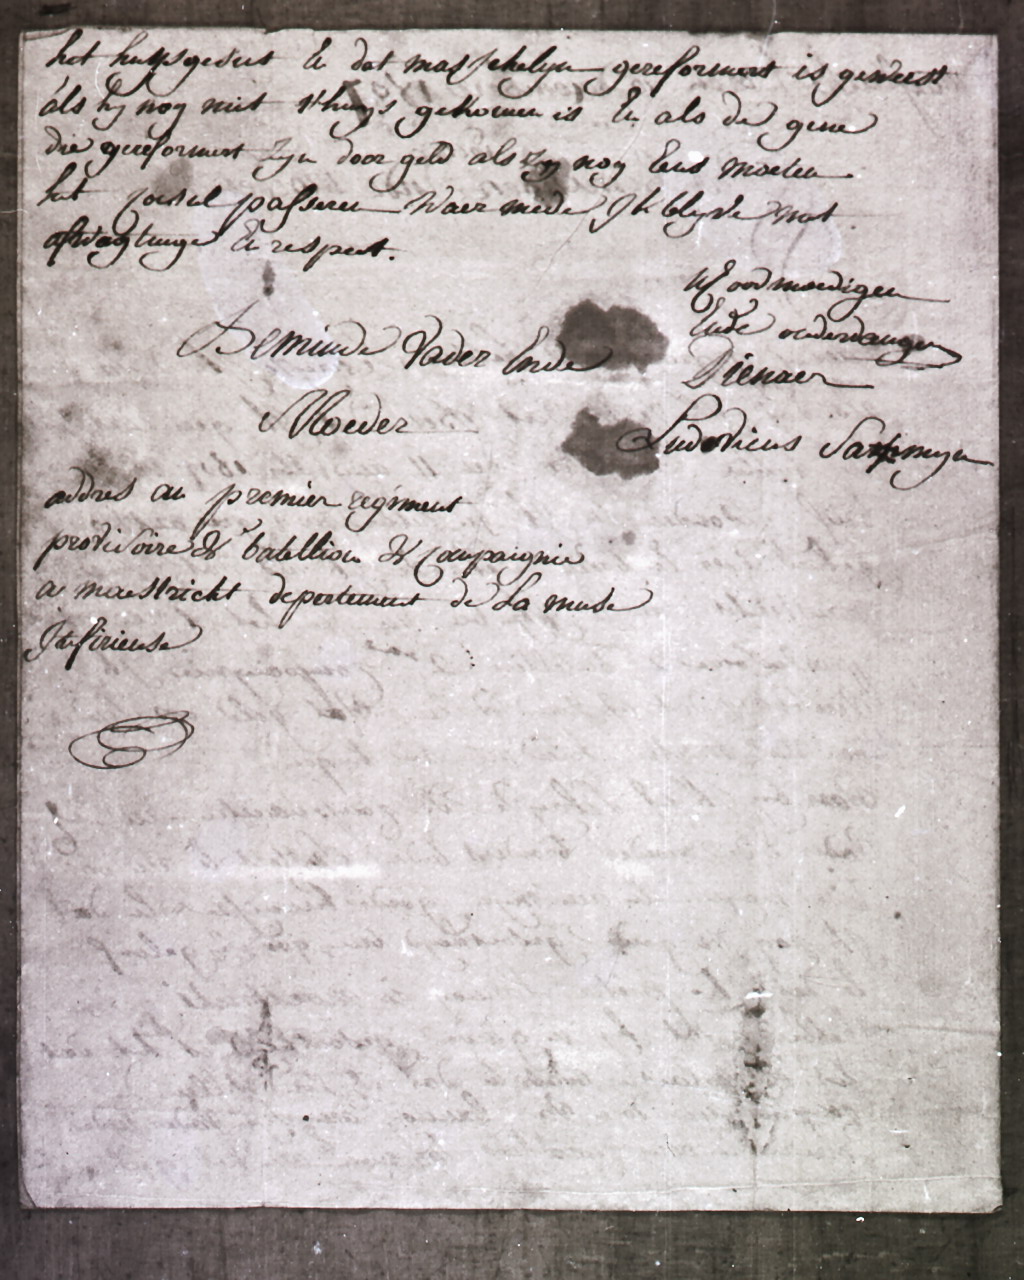 het huysgesint En dat masschelyn gereformeert is geweest
als hy nog niet thuys gekomen is En als de gene
die gereformeert zyn door geld als zy nog Eens moeten
het passeren Waer mede Ik blyve met
afwagtinge En respect.
Wt oodmoedigen
Ende onderdanigen
Dienaer
Beminde Vader Ende
Moeder
Ludovicus
addres au premier regiment
provisoire 8 batellion 8 Compaignie
a maestricht departement de La meuse
Inferieuse